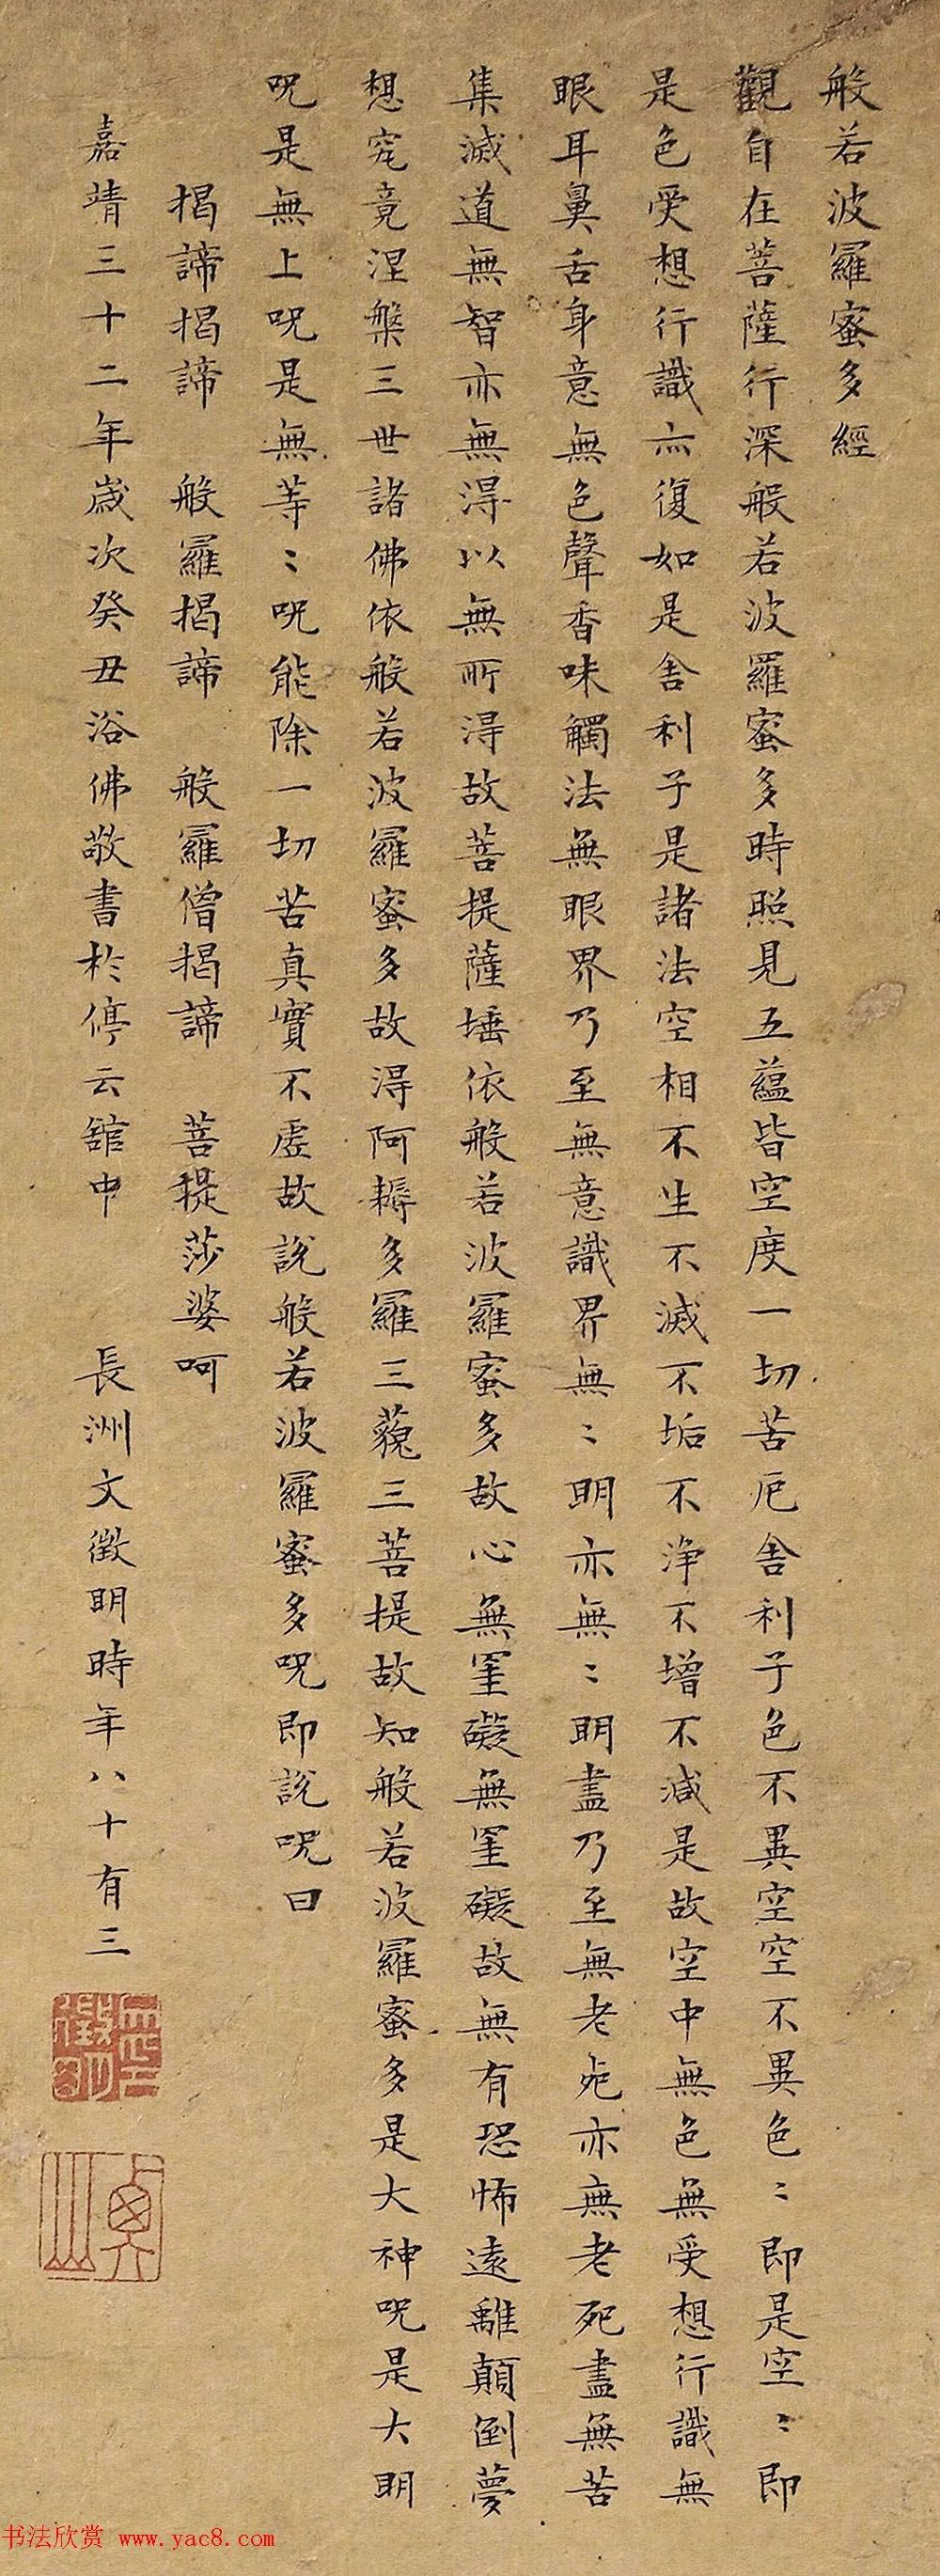 般若波羅蜜多經
觀自在菩薩行深般若波羅蜜多時照見五蘊皆空度一切苦厄舍利子色不異空空不異色〻即是空〻即
是色受想行識亦復如是舍利子是諸法空相不生不滅不垢不淨不增不減是故空中無色無受想行識無
眼耳鼻舌身意無色聲香味觸法無眼界乃至無意識界無〻明亦無〻明盡乃至無老死亦無老死盡無苦
集滅道無智亦無得以無所得故菩提薩埵依般若波羅蜜多故心無罣礙無罣礙故無有恐怖遠離顛倒夢
想究竟涅槃三世諸佛依般若波羅蜜多故得阿耨多羅三藐三菩提故知般若波羅蜜多是大神呪是大明
呪是無上呪是無等〻呪能除一切苦真實不虛故說般若波羅蜜多呪即說呪曰
揭諦揭諦 般羅揭諦 般羅僧揭諦 菩提莎婆呵
嘉靖三十二年歲次癸丑浴佛敬書於停云館中 長洲文徵明時年八十有三
书法欣赏 www.yac8.com